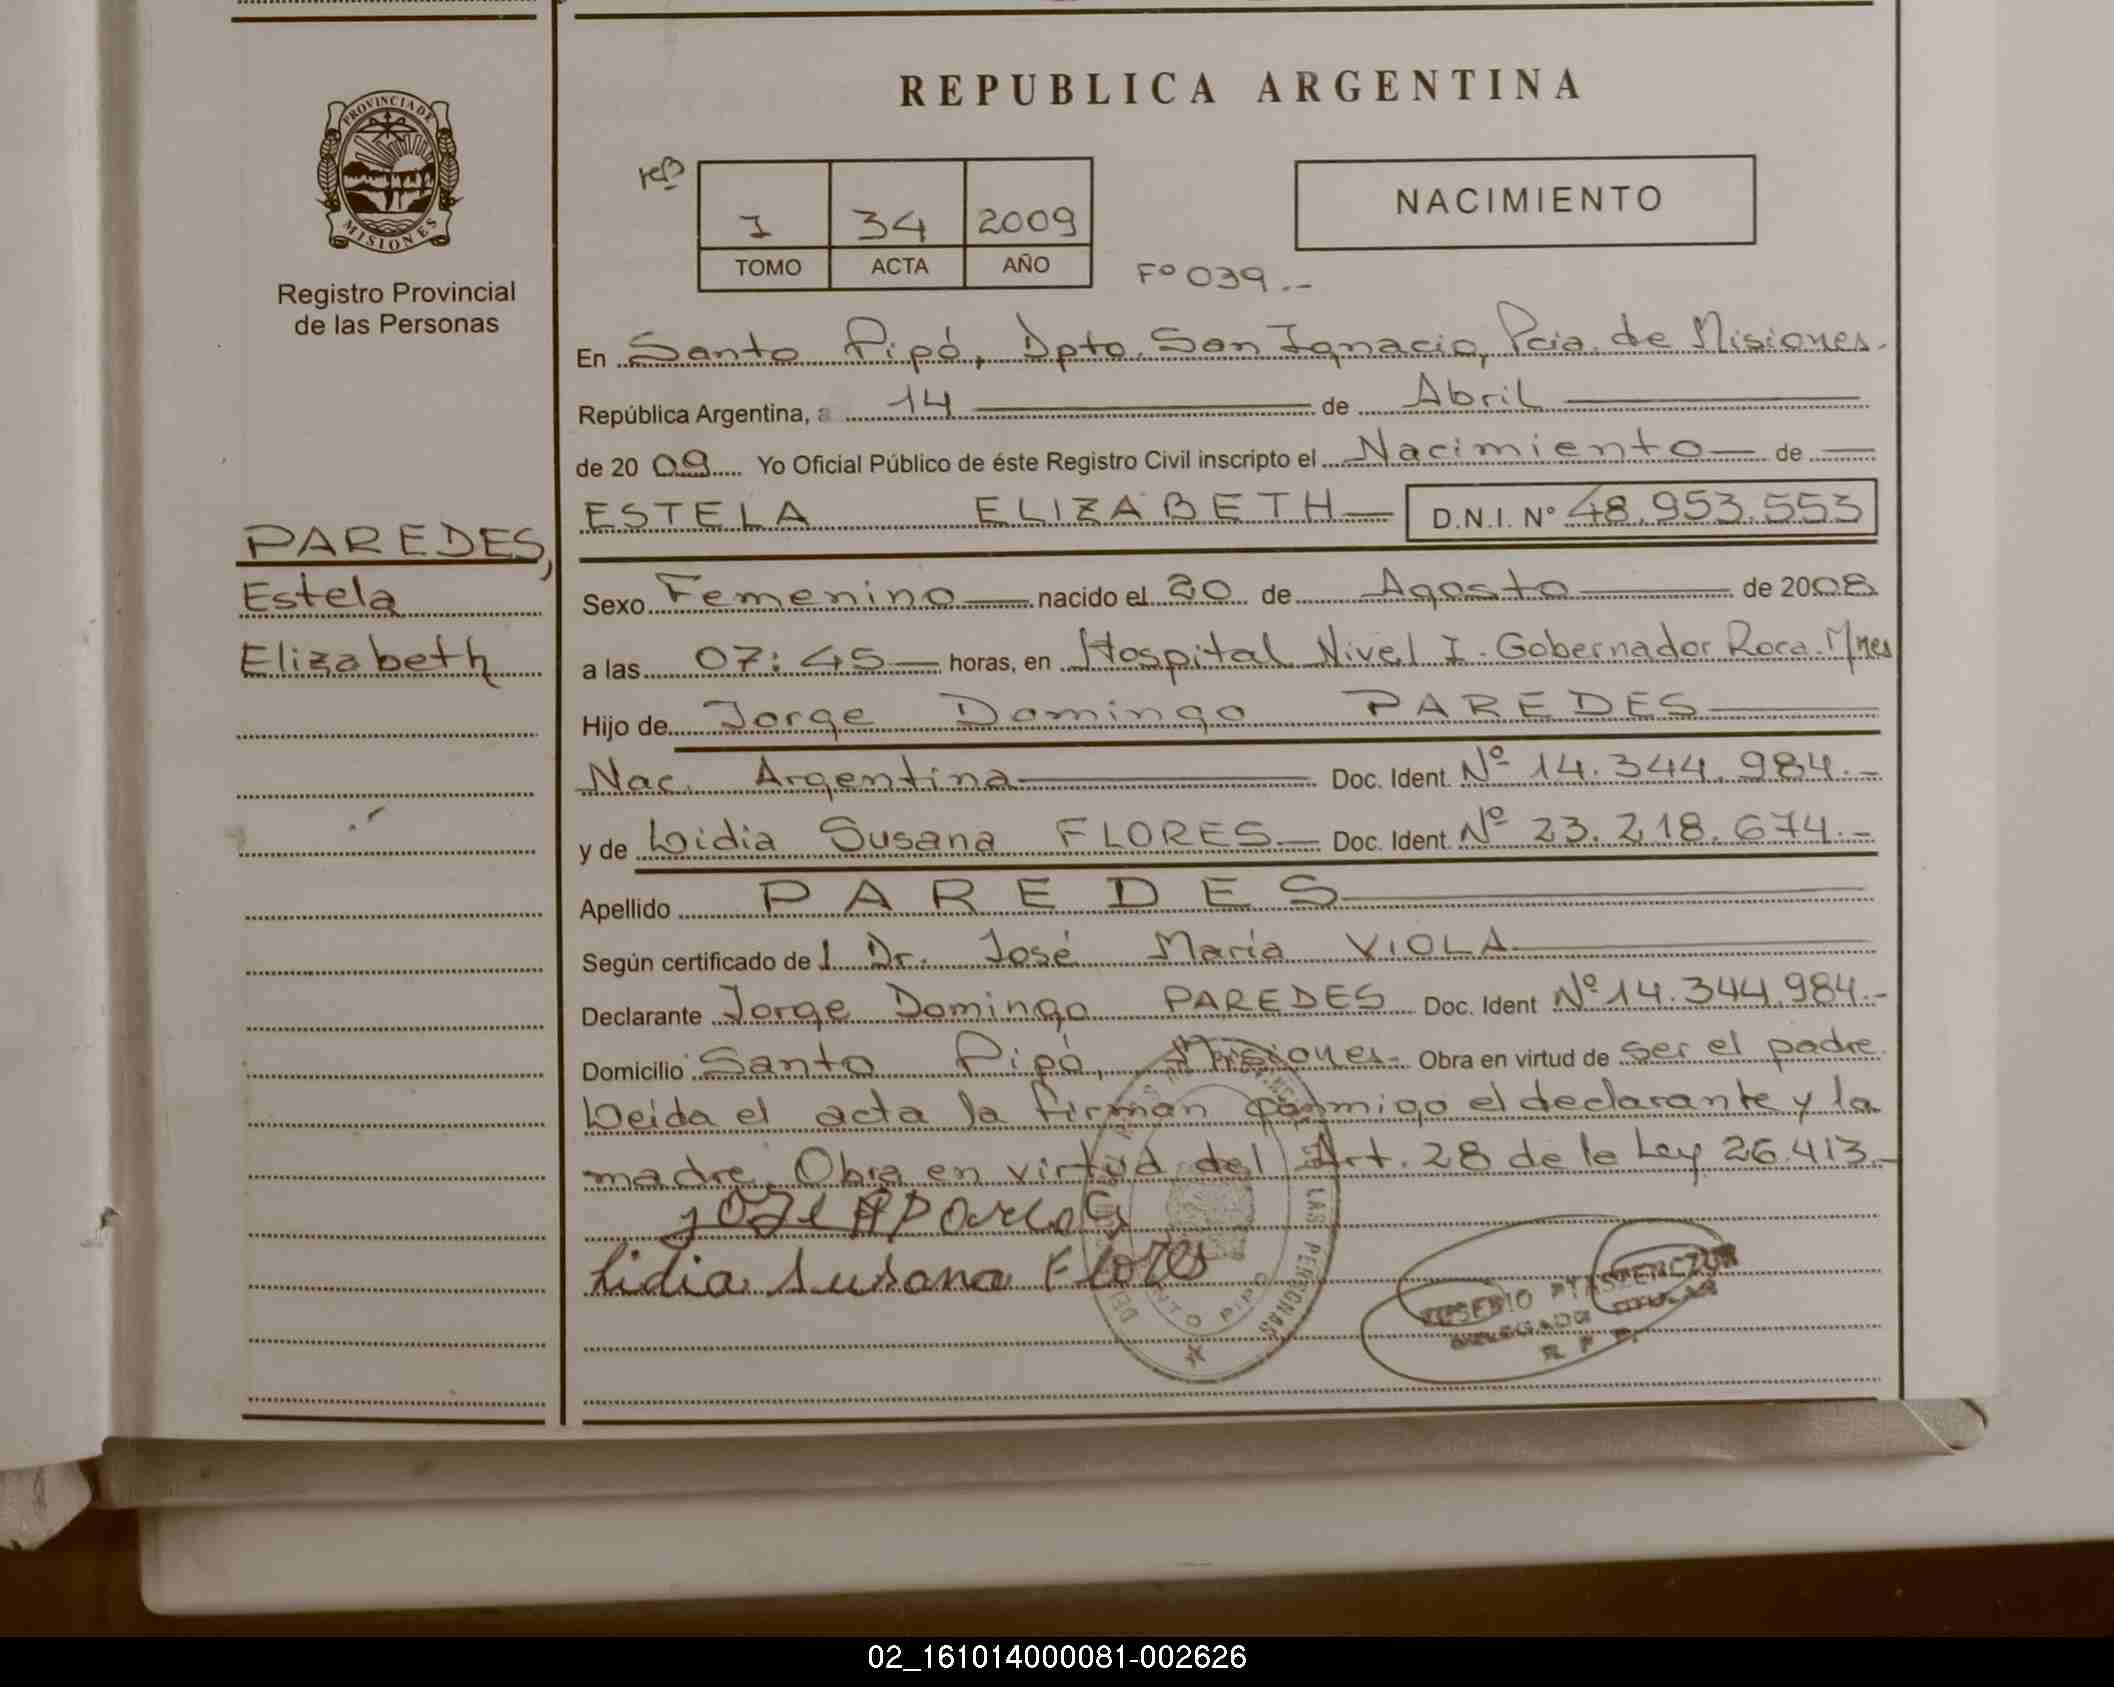 REPUBLICA ARGENTINA
PROVINCIA DE
MISIONES
Registro Provincial
de las Personas
I 34 2009
TOMO ACTA AÑO
Fº 039.-
NACIMIENTO
En Santo Pipó, Dpto. San Ignacio, Pcia. de Misiones.
República Argentina, a 14 de Abril
de 2009 Yo Oficial Público de éste Registro Civil inscripto el Nacimiento de
ESTELA ELIZABETH D.N.I. Nº 48.953.553
PAREDES,
Estela
Elizabeth
Sexo Femenino nacido el 20 de Agosto de 2008
a las 07:45 horas, en Hospital Nivel I. Gobernador Roca. Mnes
Hijo de Jorge Domingo PAREDES
Nac. Argentina Doc. Ident. Nº 14.344.984.-
y de Lidia Susana FLORES Doc. Ident. Nº 23.218.674.-
Apellido PAREDES
Según certificado de l Dr. José María VIOLA
Declarante Jorge Domingo PAREDES Doc. Ident Nº 14.344.984.-
Domicilio Santo Pipó, Misiones.- Obra en virtud de ser el padre.
Leida el acta la firman conmigo el declarante y la
madre. Obra en virtud del Art. 28 de la Ley 26.413.-
Lidia Susana Flores
LAS PERSONAS
DELEGADO TITULAR
R. P. P.
02_161014000081-002626